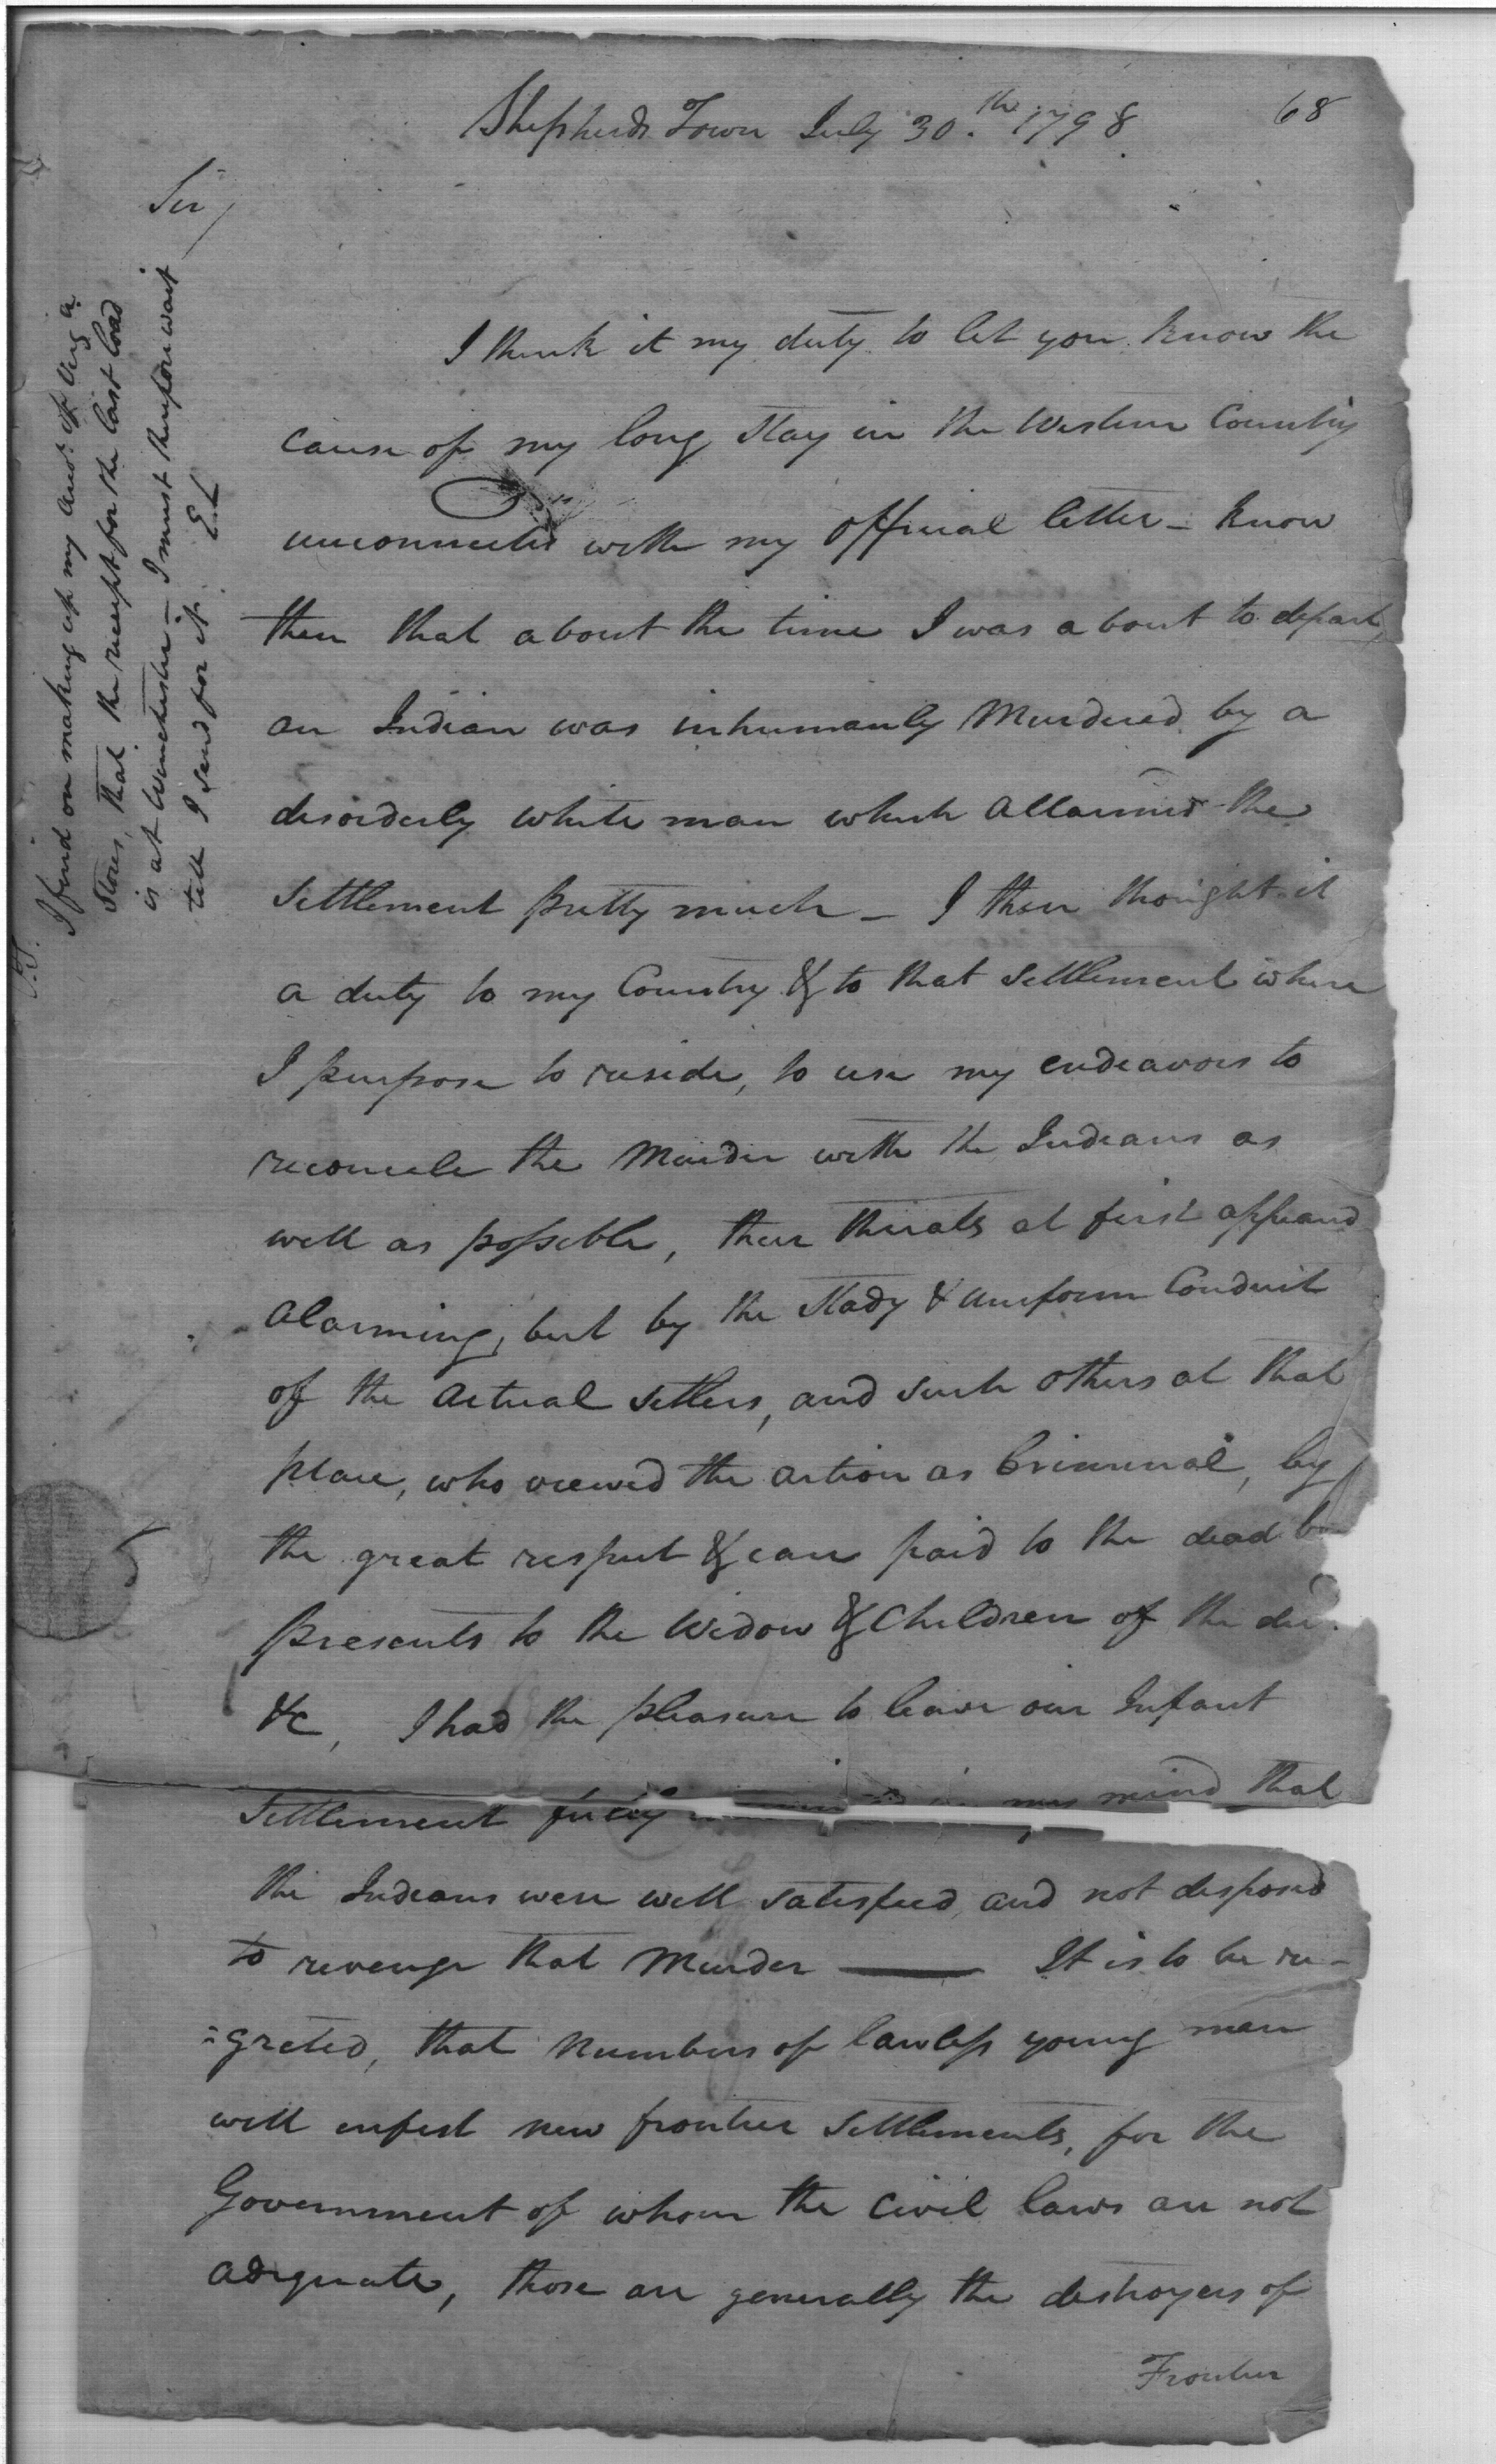 Shepherds Town July 30.th 1798
68
Sir,
I think it my duty to let you know the
cause of my long stay in the Western Country
unconnected with my official letter – know
then that about the time I was about to depart,
an Indian was inhumanly Murdered by a
disorderly white man which allarmed the
Settlement pretty much – I then thought it
a duty to my Country & to that Settlement where
I purpose to reside, to use my endeavors to
reconcile the Murder with the Indians as
well as possible, their threats at first appeard
alarming, but by the stady & uniform Conduct
of the actual settlers, and such others at that
place, who viewed the action as Criminal, by
the great respect & care paid to the dead
presents to the Widow & Children of the
&c, I had the pleasure to leave our Infant
Settlement fully in my mind that
the Indians were well satisfied, and not disposed
to revenge that Murder —— It is to be re-
=greted, that numbers of lawless young men
will infest new frontier settlements, for the
Government of whom the civil laws are not
adequate, those are generally the destroyers of
Frontier
I find on making up my Accot. of Virga.
Stores, that the receipt for the last load
is at Winchester – I must therefore wait
till I send for it. E.L